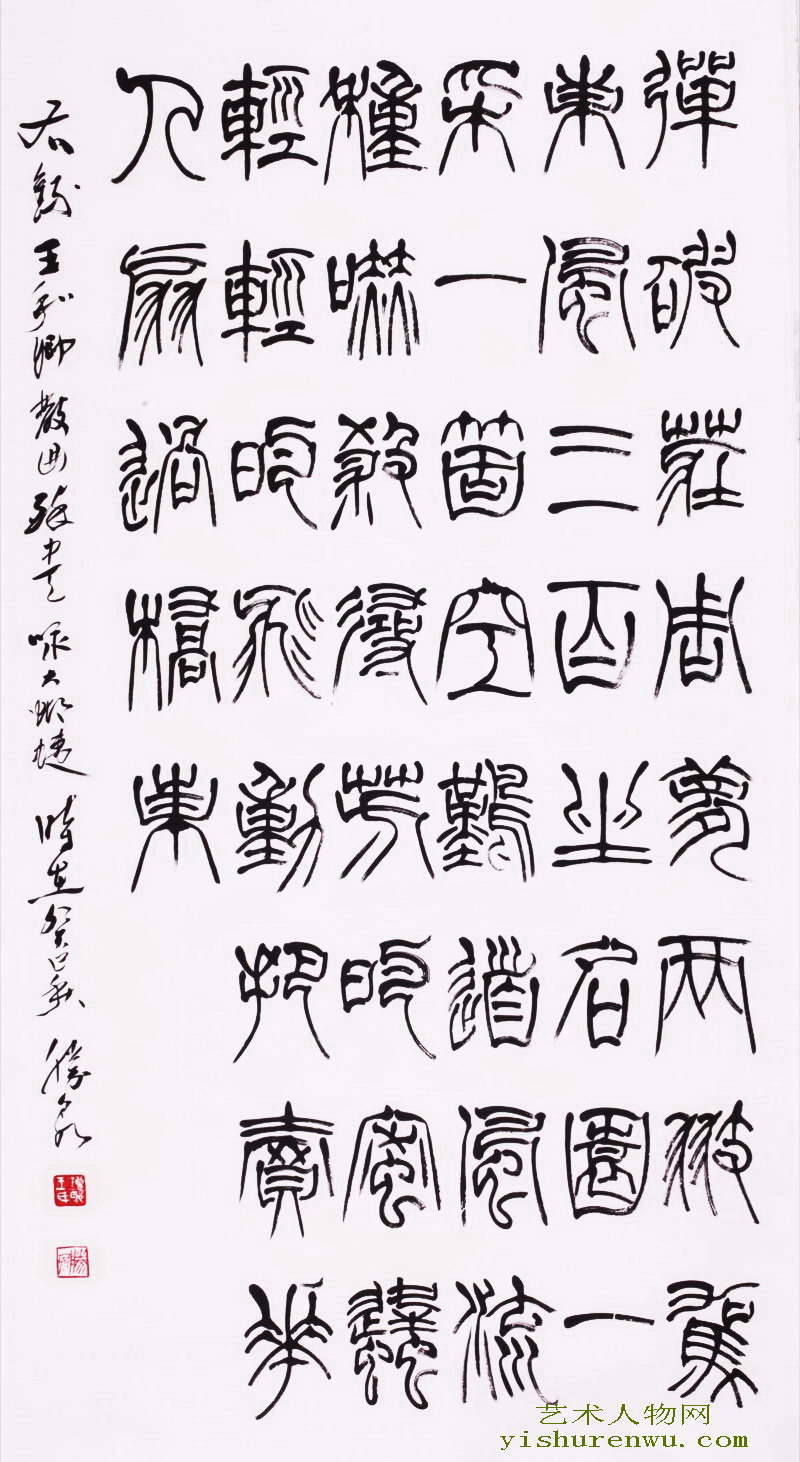 彈破莊周夢兩翅駕
東風三百坐名園一
采一箇空難道風流
種嚇殺尋芳的蜜蜂
輕輕的飛動把賣花
人扇過橋東
右錄王和卿散曲醉中天咏大蝴蝶時在癸巳秋
艺术人物网
yishurenwu.com